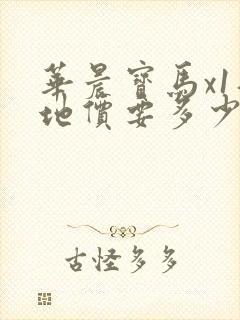 華晨寶馬x1
地價要多少
古怪多多